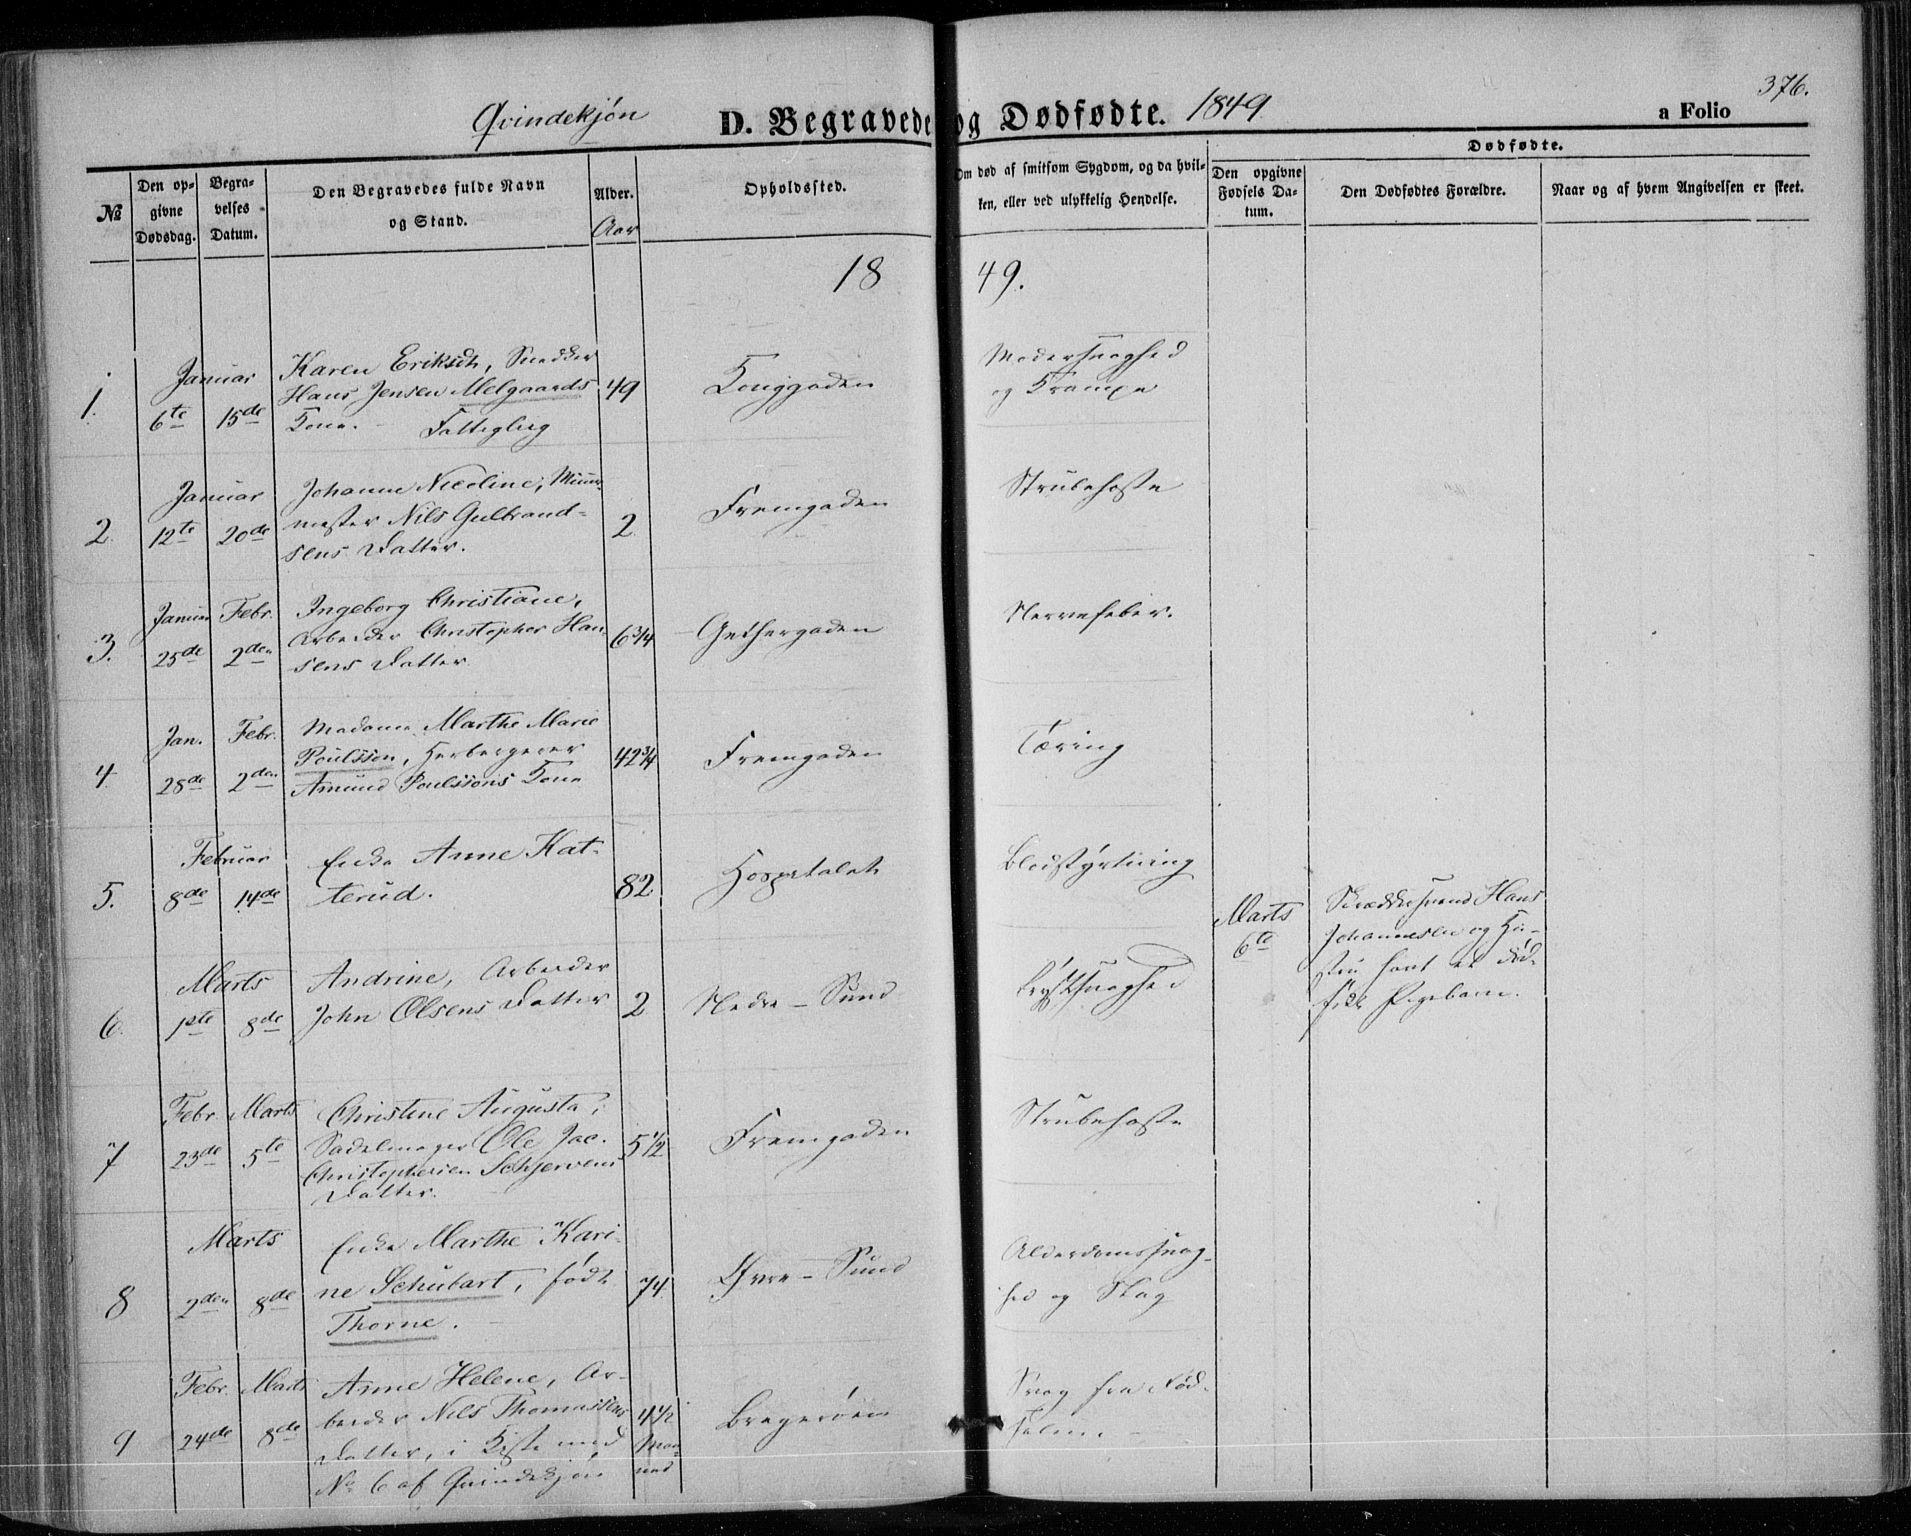 Qvindekjön D. Begravede og Dødfødte. 1849 a Folio 376.
№
Den opgivne Dødsdag.
Begravelses Datum.
Den Begravedes fulde Navn og Stand.
Alder.
Aar
Opholdssted.
Om død af smitsom Sygdom, og da hvilken, eller ved ulykkelig Hendelse.
Dødfødte.
Den opgivne Fødsels Datum.
Den Dødfødtes Forældre.
Naar og af hvem Angivelsen er skeet.
1849.
1.
Januar
6te 15de
Karen Eriksdt, Snedker
Hans Jensen Melgaards
Kone. - Fattiglig
49
Konggaden
Modersvaghed
og Krampe
2.
Januar
12te 20de
Johanne Nicoline, Muur-
mester Nils Gulbrand-
sens Datter.
2
Fremgaden
Strubehoste
3.
Januar Febr.
25de 2den
Ingeborg Christiane,
Arbeider Christopher Han-
sens Datter
6 3/4
Gethergaden
Nervefeber.
4.
Jan. Febr.
28de 2den
Madame Marthe Marie
Poulsson, Herbergerer
Amund Poulssons Kone
42 3/4
Fremgaden
Tæring
5.
Februar
8de 14de
Enke Anne Kat-
terud.
82
Hospitalet
Blodstyrtning
Marts
6te
Skræddersvend Hans
Johannesen og Hu-
stru havt et død-
født Pigebarn.
6.
Marts
1ste 8de
Andrine, Arbeider
John Olsens Datter
2
Nedre-Sund
Brystsvaghed
7
Febr. Marts
23de 5te
Christine Augusta,
Sadelmager Ole Jac.
Christophersen Schjervens
Datter.
5 1/2
Fremgaden
Strubehoste
8
Marts
2den 8de
Enke Marthe Kari-
ne Schubart, født
Thorne.
74
Øvre-Sund
Alderdomssvag-
hed og Slag
9
Febr. Marts
24de 8de
Anne Helene, Ar-
beider Nils Thomassens
Datter, i Kiste med
No 6 af Qvindekjön
4 1/2
Maa-
ned
Bragerøen
Svag fra Fød-
selen.